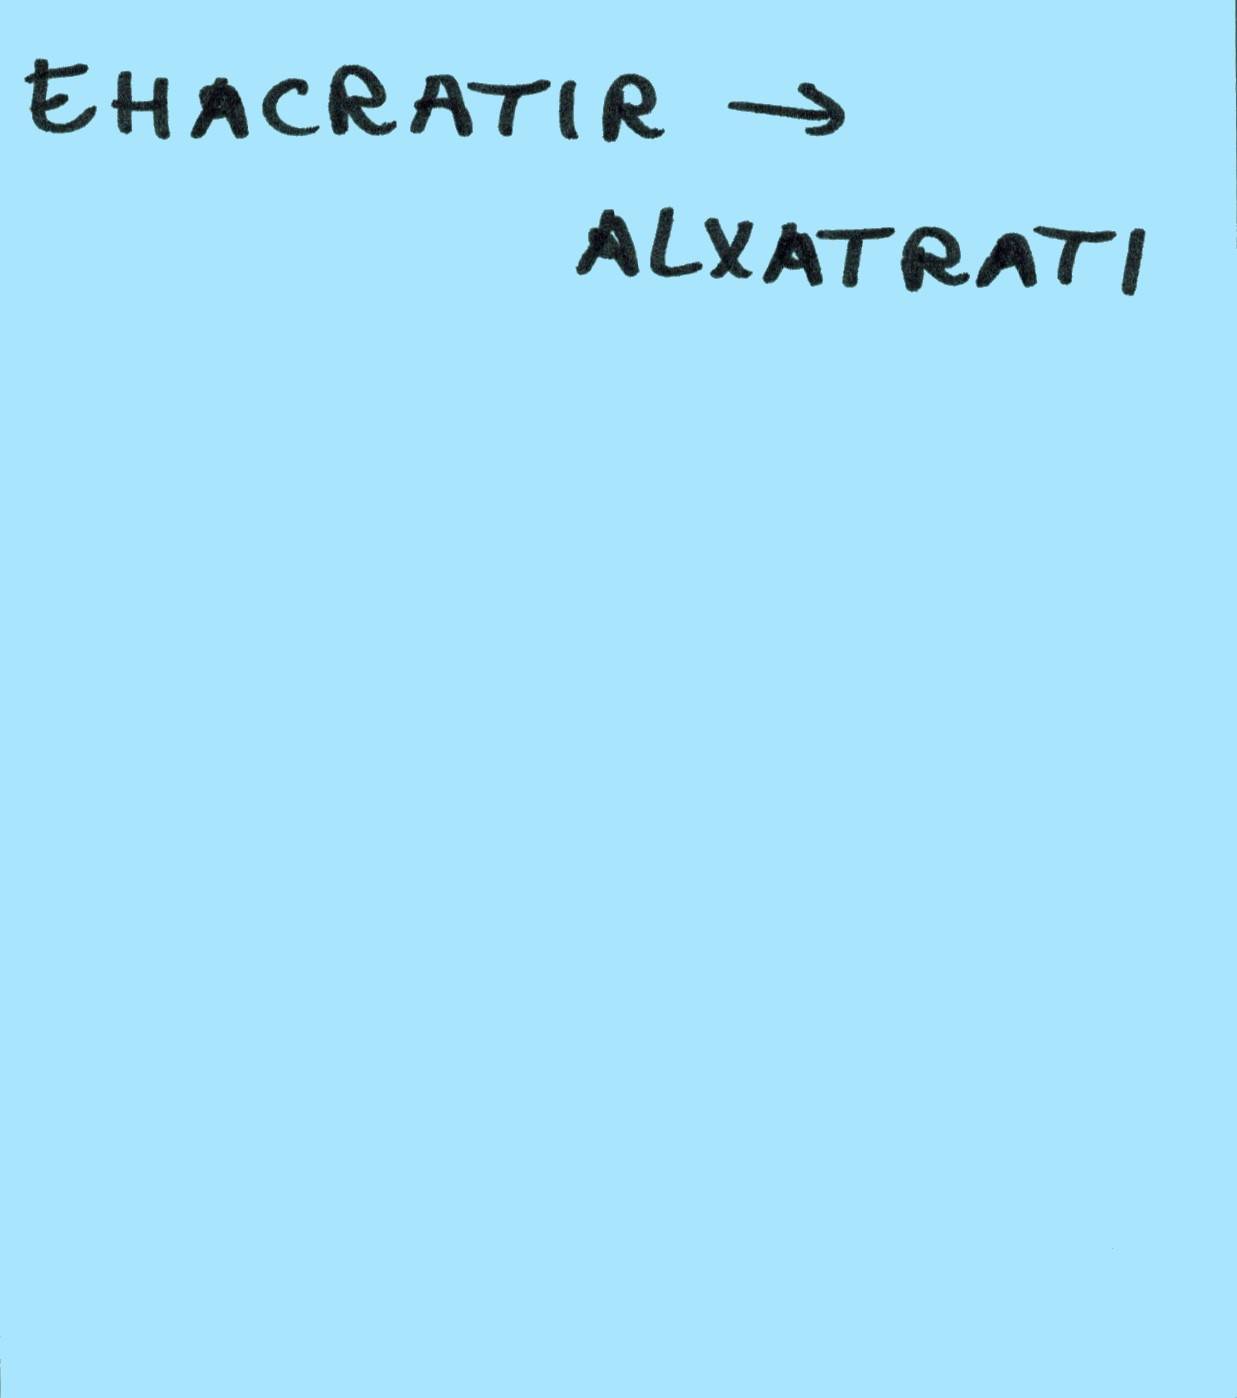 EHACRATIR →
ALXATRATI